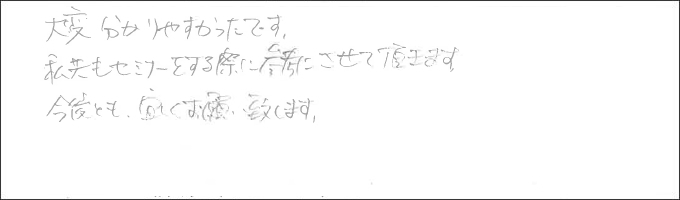 大変分かりやすかったです。
私共もセミナーをする際に参考にさせて頂きます
今後とも、宜しくお願い致します。